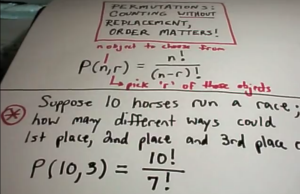 PERMUTATIONS:
COUNTING WITHOUT
REPLACEMENT,
ORDER MATTERS!
n object to choose from
P(n,r) = n! / (n-r)!
pick 'r' of those objects
* Suppose 10 horses run a race,
how many different ways could
1st place, 2nd place and 3rd place
P(10,3) = 10! / 7!